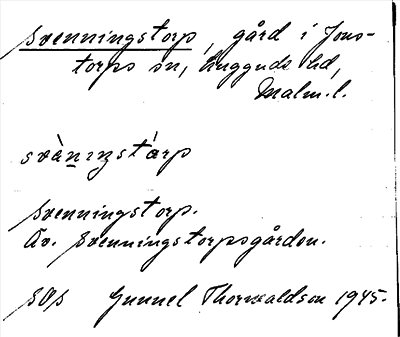 Svenningstorp, gård i Jons-
torps sn, Luggude hd,
Malm.l.
svànıŋstárp
Svenningstorp.
Äv. Svenningstorpsgården.
SOS Gunnel Thorwaldson 1945.